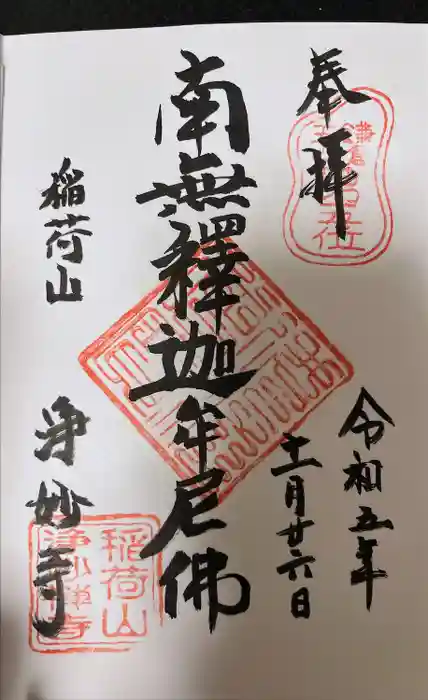 奉拝
令和五年
十一月廿六日
南無釋迦牟尼佛
稲荷山
浄妙寺
稲荷山
浄妙禅寺